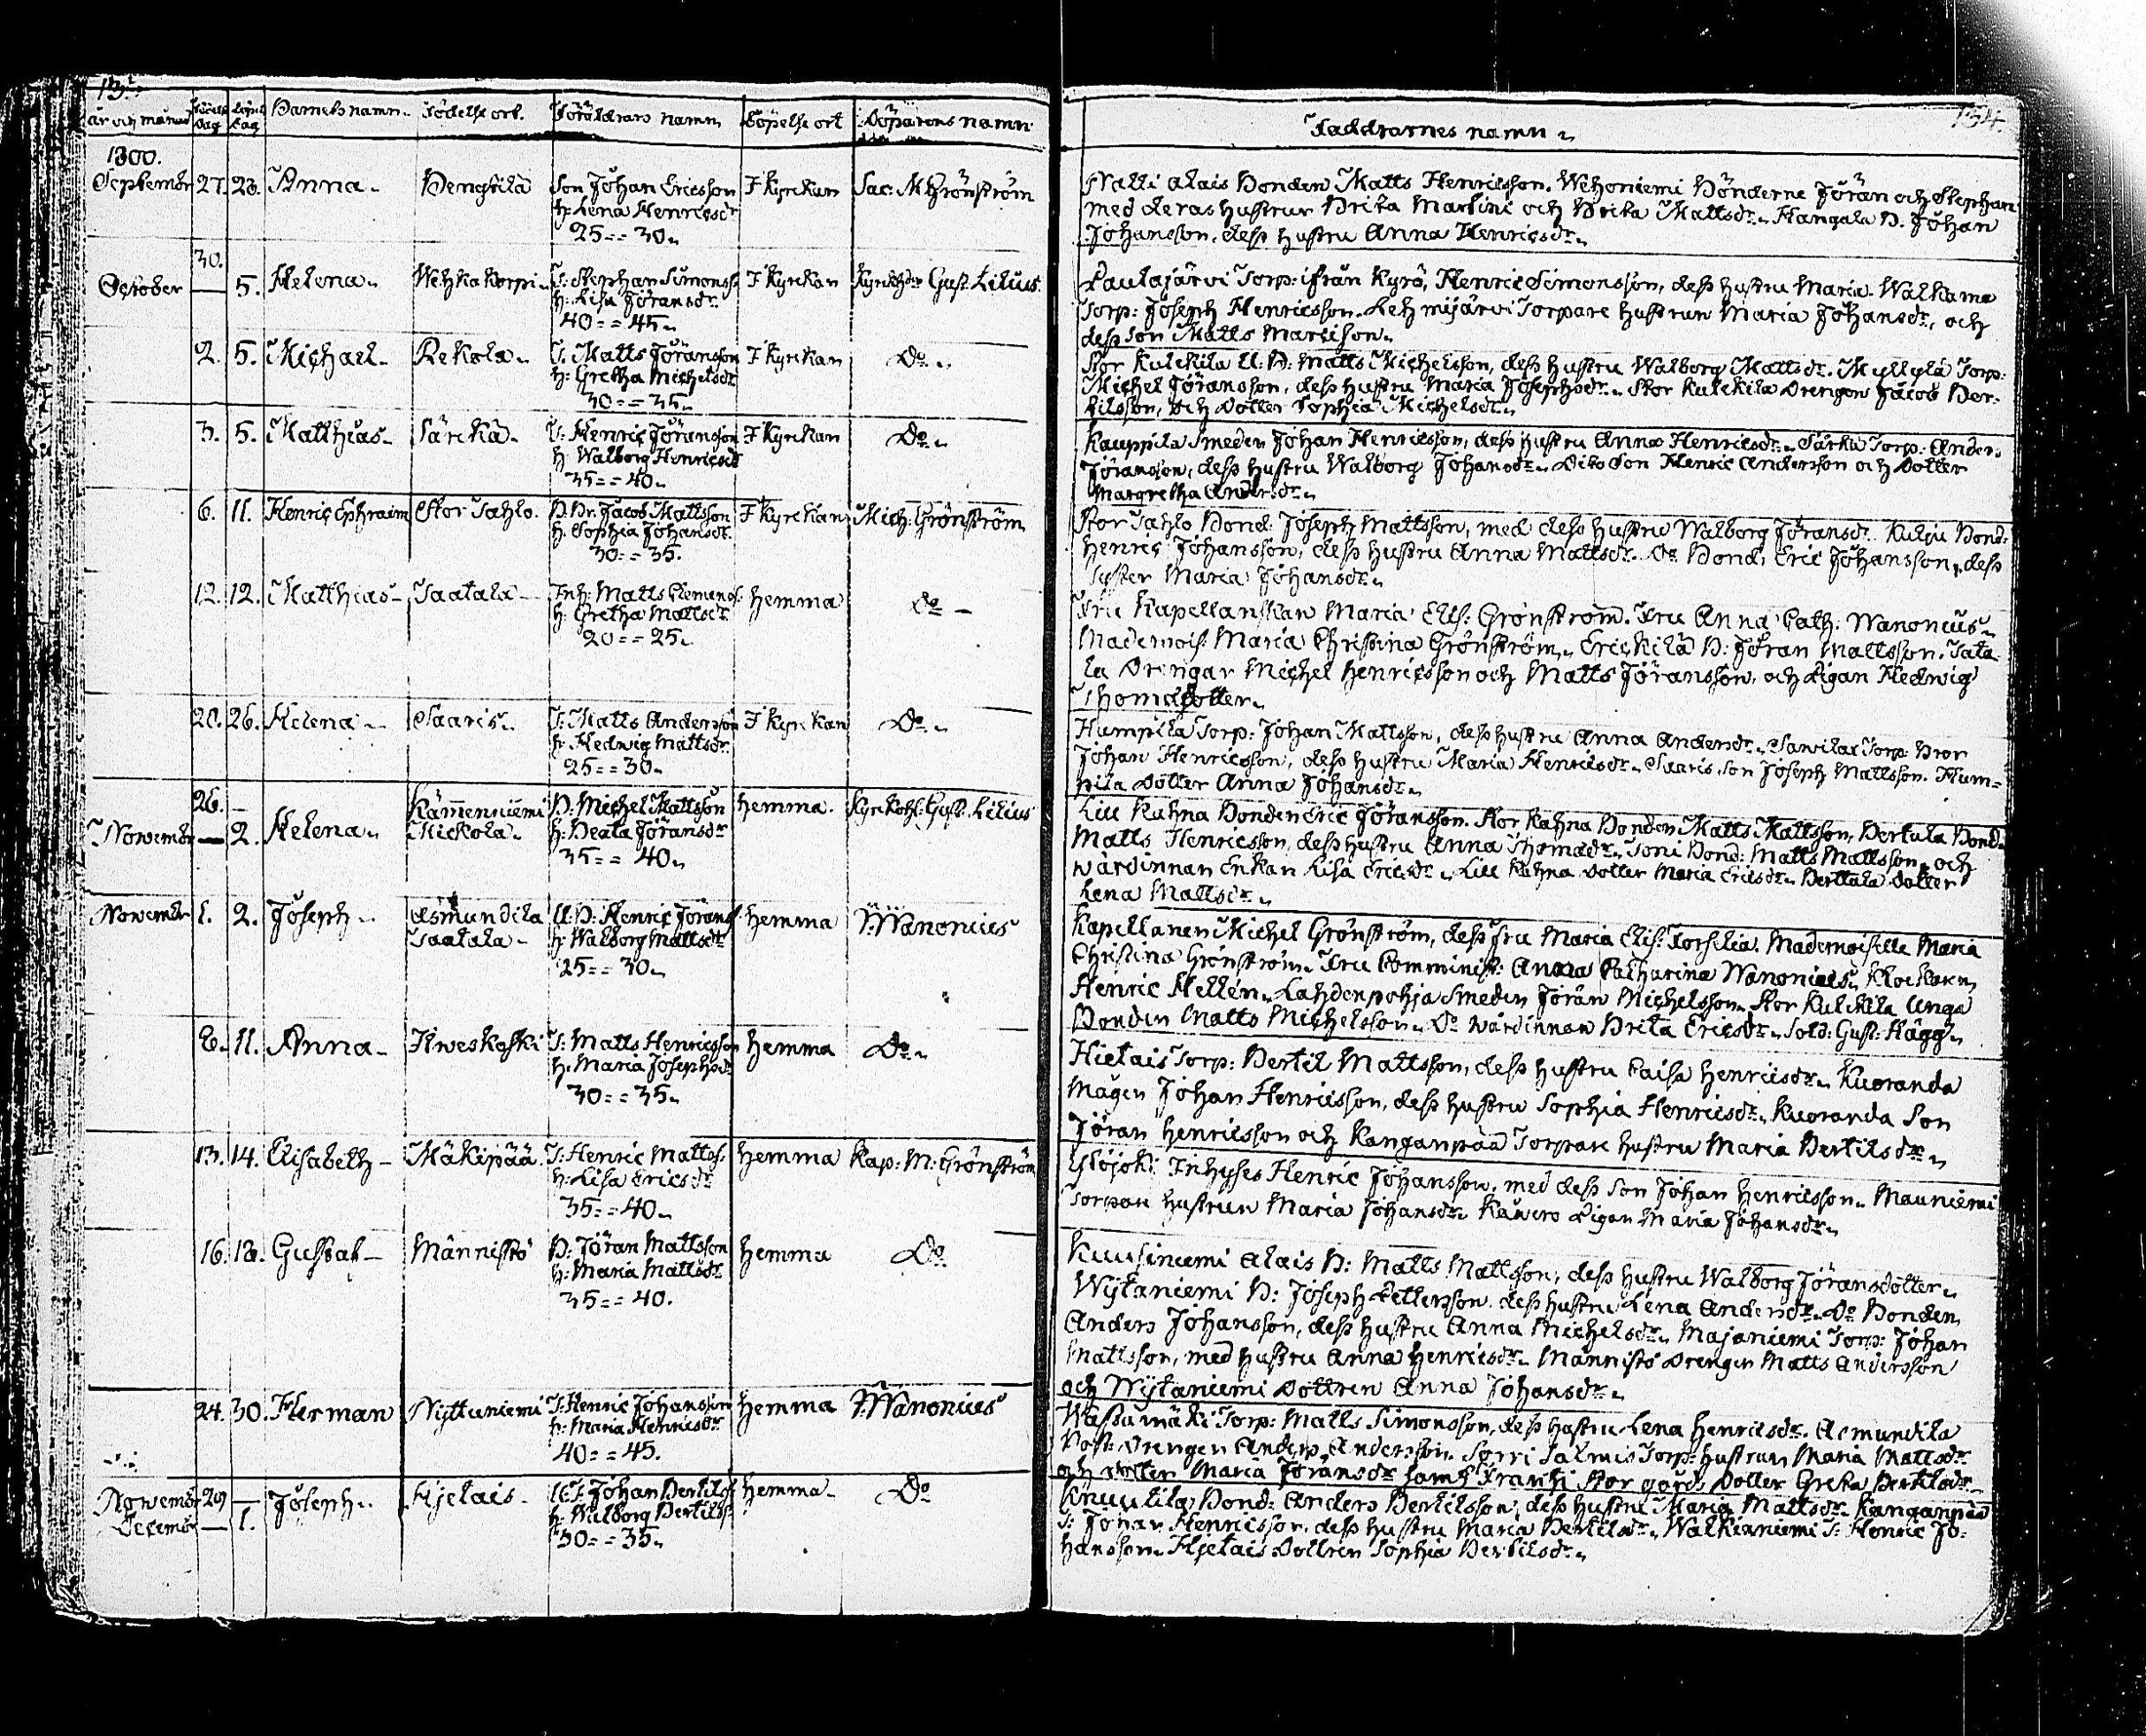 År och månad Födels dag Döpels dag Barnets namn. Födelse ort. Föräldrars namn Döpelse ort Döparens namn
1800.
September 27. 28. Anna. Hengkilä Son Johan Ericsson I kyrckan Sac: M Grönström
h: Lena Henricsdr
25 = = 30.
30.
October — 5. Helena. Wehkakorpi. T: Stephan Simonss. I kyrckan Kyrckohr: Gust: Lilius
h: Lisa Jöransdr.
40 = = 45.
2. 5. Michael. Rekola. T: Matts Jöransson I kyrckan Do.
h: Gretha Michelsdr
30 = = 35.
3. 5. Matthias. Särckä. T: Henric Jöransson I kyrckan Do.
h: Walborg Henricsdr
35 = = 40.
6. 11. Henric Ephraim Stor Sahlo. B. Br. Jacob Mattsson I kyrckan Mich: Grönström
h. Sophia Johansdr.
30 = = 35.
12. 12. Matthias Taatala Inh: Matts Clemens: hemma Do
h: Gretha Mattsdr.
20 = = 25.
20. 26. Helena Saaris. T: Matts Andersson I kyrckan Do.
h: Hedwig Mattsdr.
25 = = 30.
26. — Kämenniemi B: Michel Mattsson hemma. Kyrkoh: Gust. Lilius
November — 2. Helena. Mickola. h: Beata Jöransdr
35 = = 40.
November 1. 2. Joseph. Asmundila U. B: Henric Jörans: hemma N: Wanonius
Taatala h: Walborg Mattsdr
25 = = 30.
8. 11. Anna Ilweskoski T: Matts Henricsson hemma Do.
h: Maria Josephsdr
30 = = 35.
13. 14. Elisabeth Mäkipää. T: Henric Mattss: hemma Kap: M: Grönström
h: Lisa Ericsdr
35 = = 40.
16. 18. Gustaf Männistö B: Jöran Mattsson hemma Do
h: Maria Mattsdr
35 = = 40.
24. 30. Herman Wyttaniemi T: Henric Johansson hemma N: Wanonius
h: Maria Henricsdr
40 = = 45.
November 29 — Joseph. Hjetais. U: T: Johan Bertilss: hemma. Do
December — 1. h: Walborg Bertilss:
30 = = 35.
134.
Faddrarnes namn
Alais Bonden Matts Henricsson. Wehoniemi Bönderne Jöran och Stephan
med deras hustrur Brita Martini och Brita Mattsdr. Hangala B. Johan
Johansson, dess hustru Anna Henricsdr.
Pautajärvi Torp: ifrån Kyrö, Henric Simonsson, dess hustru Maria. Walkama
Torp: Joseph Henricsson. Torpare hustrun Maria Johansdr, och
dess son Matts Mattsson.
Stor Kulckila U. B: Matts Michelsson, dess hustru Walborg Mattsdr. Myllylä Torp:
Michel Jöransson, dess hustru Maria Josephsdr. Stor Kulckila Drengen Jacob Ber-
tilsson, och dotter Sophia Michelsdr.
Kauppila Smeden Johan Henricsson, dess hustru Anna Henricsdr. Särkä Torp: Anders
Jöransson, dess hustru Walborg Johansdr. Dito Son Henric Andersson och dotter
Margretha Andersdr.
Stor Sahlo Bond: Joseph Mattsson, med dess hustru Walborg Jöransdr. Kulju Bond:
Henric Johansson, dess hustru Anna Mattsdr. Do Bond: Eric Johansson, dess
syster Maria Johansdr.
Fru Kapellanskan Maria Elis: Grönström. Fru Anna Cath: Wanonius.
Mademois: Maria Christina Grönström. Erickilä B: Jöran Mattsson. Tata-
la Drengar Michel Henricsson och Matts Jöransson, och Pigan Hedwig
Thomasdotter.
Humpila Torp: Johan Mattsson, dess hustru Anna Andersdr. Sawilax Torp: Bror
Johan Henricsson, dess hustru Maria Henricsdr. Saaris, son Joseph Mattsson. Hum-
pila dotter Anna Johansdr.
Lill Kahna Bonden Eric Jöransson. Stor Kahna Bonden Matts Mattsson, Bertula Bond
Matts Henricsson, dess hustru Anna Thomasdr. Toni Bond: Matts Mattsson, och
wärdinnan Enkan Lisa Ericsdr. Lill Kahna dotter Maria Ericsdr. Berttala dotter
Lena Mattsdr.
Kapellanen Michel Grönström, dess Fru Maria Elis: Forselia. Mademoiselle Maria
Christina Grönström. Fru Comminist: Anna Catharina Wanonius. Klockaren
Henric Hellén. Lahdenpohja Smeden Jöran Michelsson. Stor Kulckila Unga
Bonden Matts Michelsson. Do wärdinnan Brita Ericsdr. Sold: Gust: Hägg.
Hietais Torp: Bertil Mattsson, dess hustru Caisa Henricsdr. Kuoranda
Mågen Johan Henricsson, dess hustru Sophia Henricsdr. Kuoranda Son
Jöran Henricsson och Kanganpää Torpare hustru Maria Bertilsdr.
Ylöjoki Inhyses Henric Johansson, med dess son Johan Henricsson. Mauniemi
Torpare hustrun Maria Johansdr. Käwers Pigan Maria Johansdr.
Kuusiniemi Alais B: Matts Mattsson, dess hustru Walborg Jöransdotter.
Wijtaniemi B: Joseph Pettersson. dess hustru Lena Andersdr. Do Bonden
Anders Johansson, dess hustru Anna Michelsdr. Majaniemi Torp: Johan
Mattsson, med hustru Anna Henricsdr. Männistö Drengen Matts Andersson
och Wijtaniemi dottren Anna Johansdr.
Wassamäki Torp: Matts Simonsson, dess hustru Lena Henricsdr. Asmundila
Drengen Anders Andersson. Sorri Salmis Torp: hustrun Maria Mattsdr
och dotter Maria Jöransdr samt Frantzi Stor gård dotter Greta Bertilsdr
Knuutila Bond: Anders Bertilsson, dess hustru Maria Mattsdr. Kanganpää
T: Johan Henricsson, dess hustru Maria Bertilsdr. Walkianiemi T: Henric Jo-
hansson. Hjetais Dottren Sophia Bertilsdr.